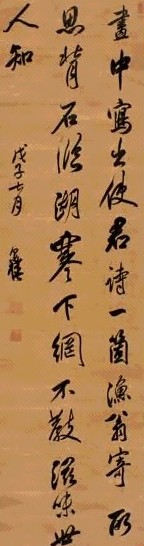 畫中寫出使君詩一箇漁翁寄所
思背石臨湖寒下網不教滋味世
人知
戊子月